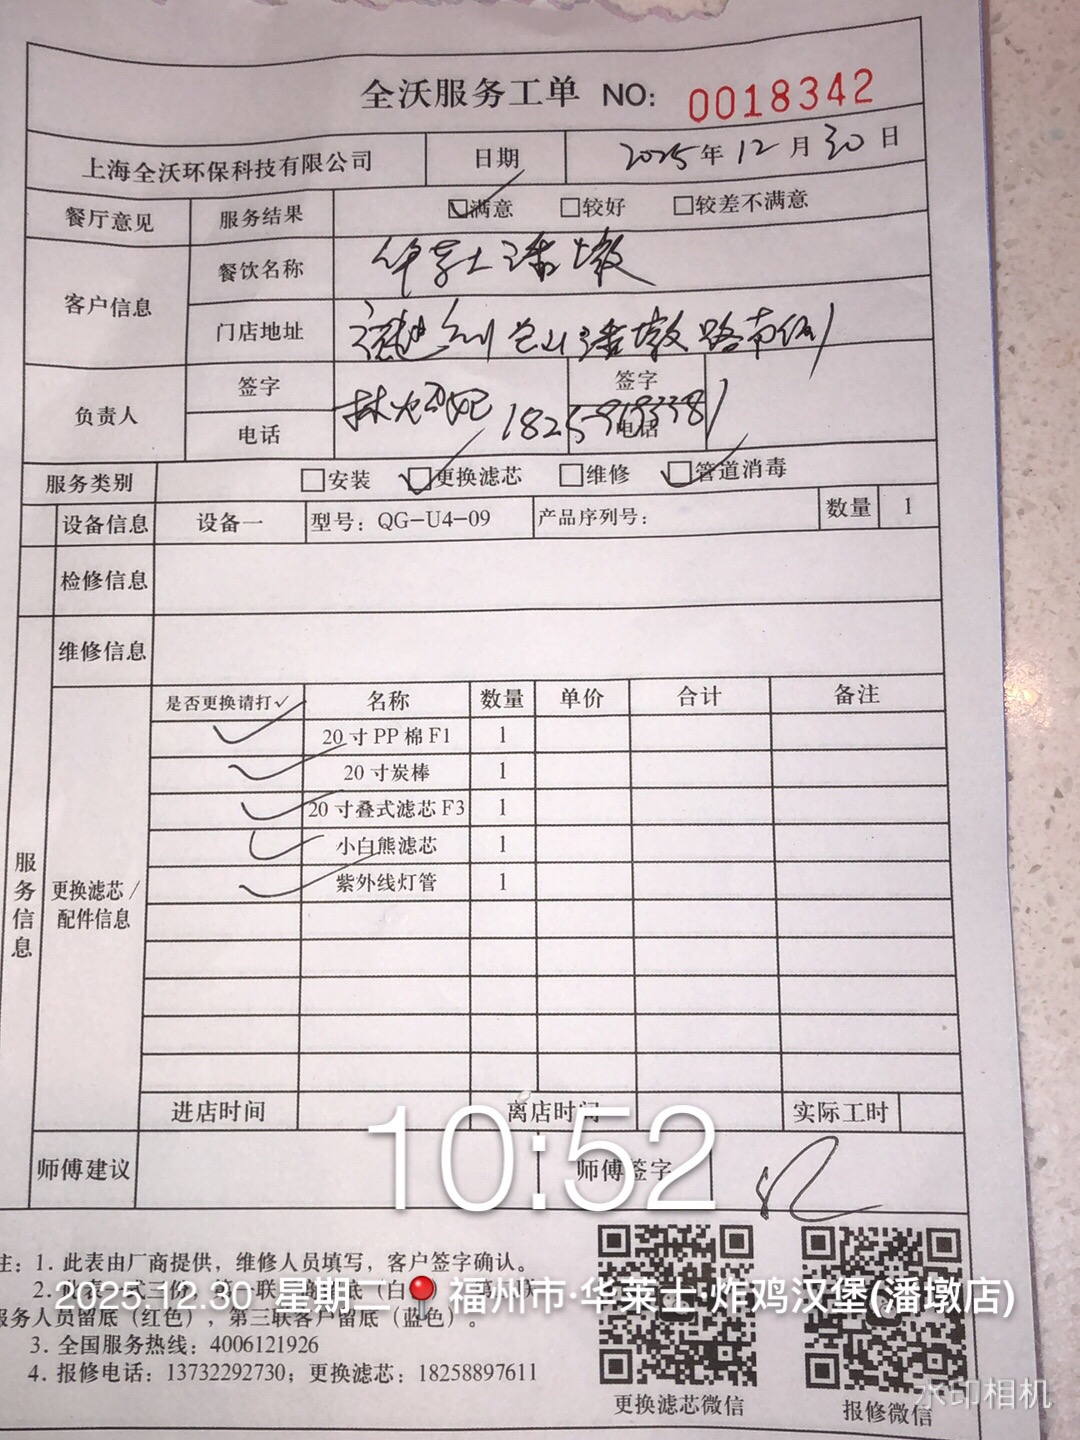 全沃服务工单 NO: 0018342
上海全沃环保科技有限公司 日期 2025年12月30日
餐厅意见 服务结果 ☑满意 □较好 □较差不满意
客户信息 餐饮名称 华莱士潘墩
门店地址 福建福州仓山潘墩路南侧
负责人 签字 林 妃 签字
电话 电话
服务类别 □安装 ☑更换滤芯 □维修 ☑管道消毒
设备信息 设备一 型号: QG-U4-09 产品序列号: 数量 1
检修信息
维修信息
服务信息
更换滤芯/配件信息
是否更换请打✓ 名称 数量 单价 合计 备注
✓ 20寸PP棉F1 1
✓ 20寸炭棒 1
✓ 20寸叠式滤芯F3 1
✓ 小白熊滤芯 1
✓ 紫外线灯管 1
进店时间 离店时间 实际工时
10:52
师傅建议 师傅签字
注: 1. 此表由厂商提供，维修人员填写，客户签字确认。
2. 此表一式三份，第一联 底（白
2025.12.30 星期二 福州市·华莱士·炸鸡汉堡(潘墩店)
服务人员留底（红色），第三联客户留底（蓝色）。
3. 全国服务热线: 4006121926
4. 报修电话: 13732292730; 更换滤芯: 18258897611
更换滤芯微信 报修微信
水印相机